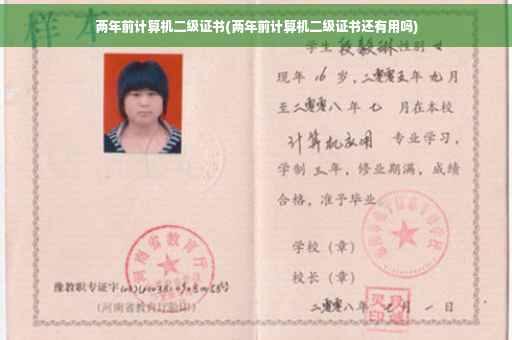 两年前计算机二级证书(两年前计算机二级证书还有用吗)
样本
学生 段毅琳 性别 女
现年 16 岁,二零零五年 九月
至二零零八年 七 月在本校
计算机应用 专业学习,
学制 三 年,修业期满,成绩
合格,准予毕业
学校(章)
校长(章)
二零零八年 七 月 一 日
河南省教育厅
豫教职专证字
(河南省教育厅验印)